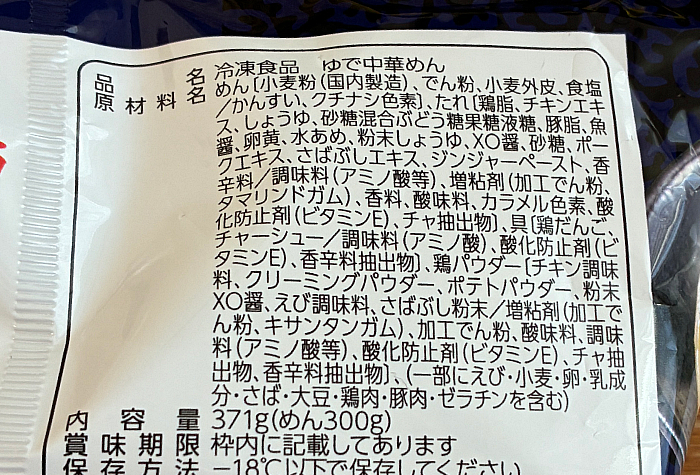 品名 冷凍食品 ゆで中華めん
原材料名 めん〔小麦粉(国内製造)、でん粉、小麦外皮、食塩
／かんすい、クチナシ色素〕、たれ〔鶏脂、チキンエキ
ス、しょうゆ、砂糖混合ぶどう糖果糖液糖、豚脂、魚
醤、卵黄、水あめ、粉末しょうゆ、XO醤、砂糖、ポー
クエキス、さばぶしエキス、ジンジャーペースト、香
辛料／調味料(アミノ酸等)、増粘剤(加工でん粉、
タマリンドガム)、香料、酸味料、カラメル色素、酸
化防止剤(ビタミンE)、チャ抽出物〕、具〔鶏だんご、
チャーシュー／調味料(アミノ酸)、酸化防止剤(ビ
タミンE)、香辛料抽出物〕、鶏パウダー〔チキン調味
料、クリーミングパウダー、ポテトパウダー、粉末
XO醤、えび調味料、さばぶし粉末／増粘剤(加工で
ん粉、キサンタンガム)、加工でん粉、酸味料、調味
料(アミノ酸等)、酸化防止剤(ビタミンE)、チャ抽
出物、香辛料抽出物〕、(一部にえび・小麦・卵・乳成
分・さば・大豆・鶏肉・豚肉・ゼラチンを含む)
内容量 371g(めん300g)
賞味期限 枠内に記載してあります
保存方法 −18℃以下で保存してください